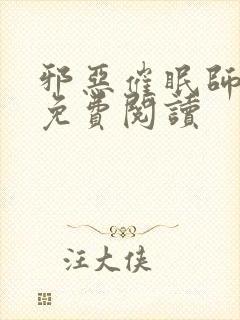 邪惡催眠師
免費閱讀
汪大侠